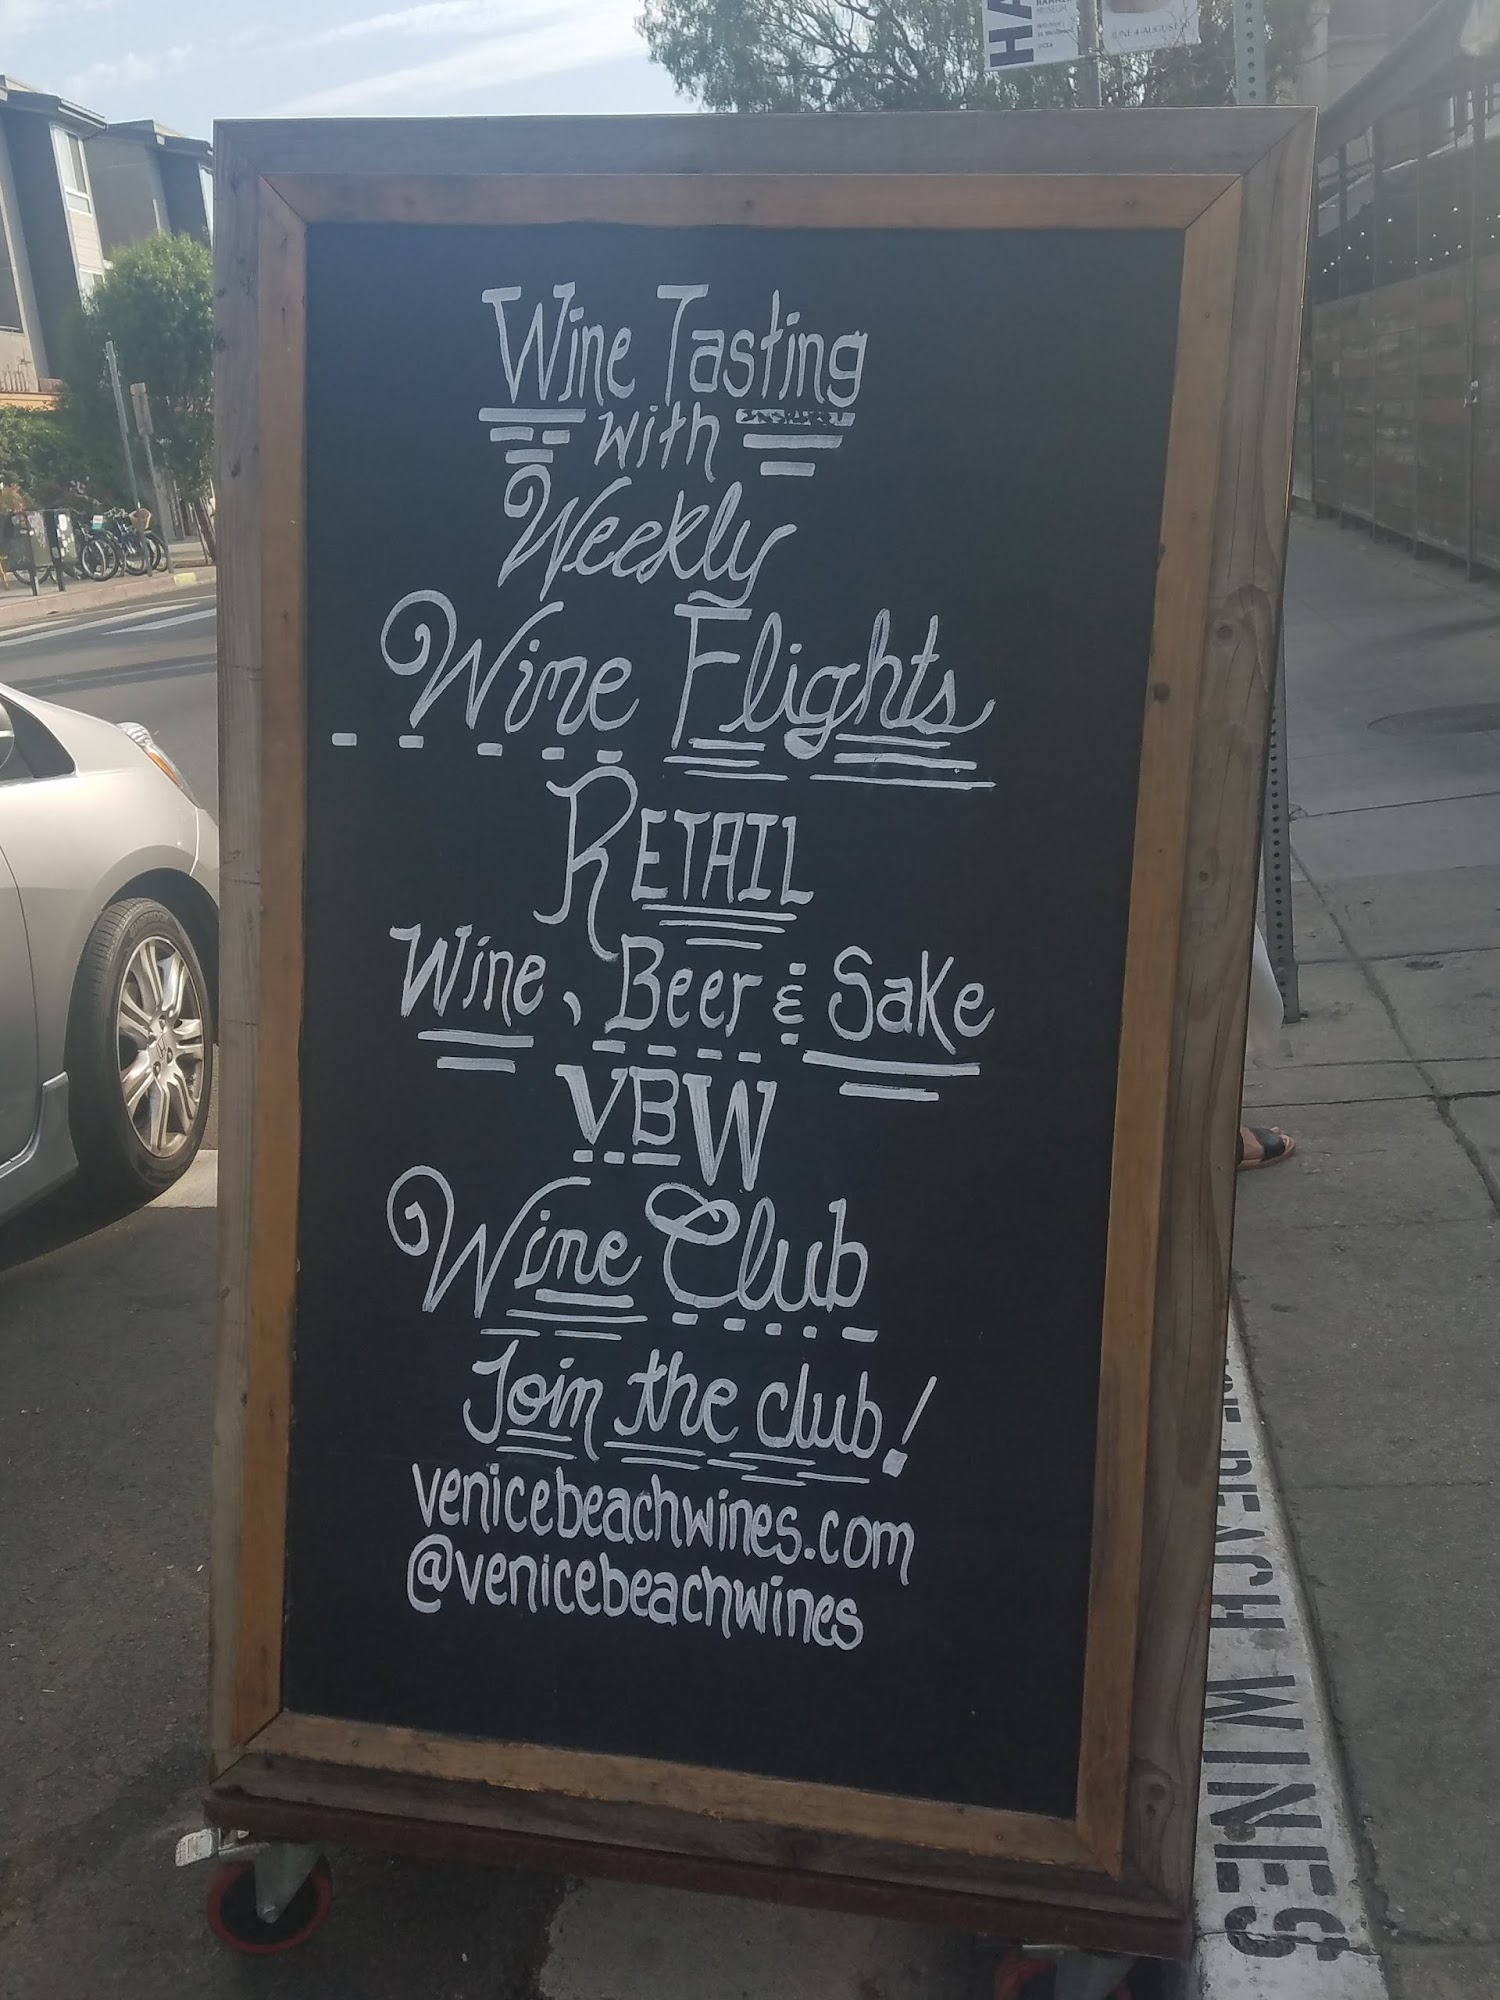 HA
HAMMER
MUSEUM
UCLA
JUNE 4-AUGUST
Wine Tasting
with
Weekly
Wine Flights
RETAIL
Wine, Beer & Sake
VBW
Wine Club
Join the club!
venicebeachwines.com
@venicebeachwines
BEACH WINES